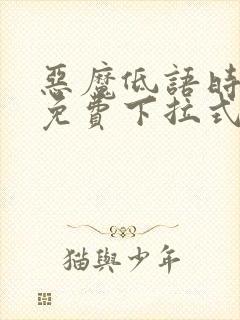 惡魔低語時
免費下拉式
猫與少年